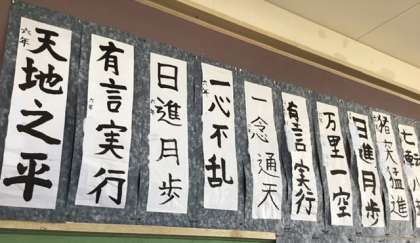 天地之平
六年
有言実行
六年
日進月歩
六年
一心不乱
六年
一念通天
有言実行
万里一空
日進月歩
猪突猛進
七転